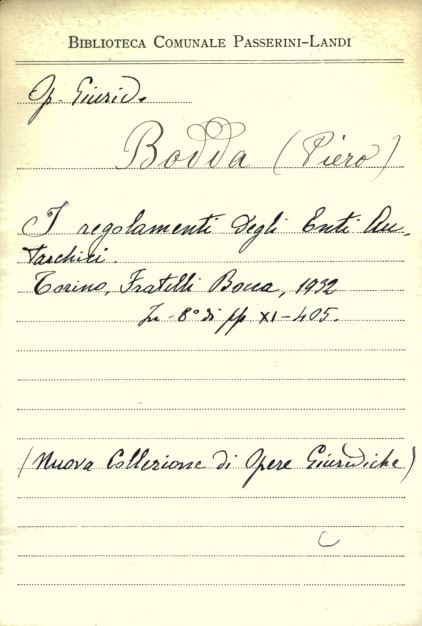 BIBLIOTECA COMUNALE PASSERINI-LANDI
Op. Giurid.
Bodda (Piero)
I regolamenti degli Enti Au-
tarchici.
Torino, Fratelli Bocca, 1932
In-8° di pp XI-405.
(Nuova Collezione di Opere Giuridiche)